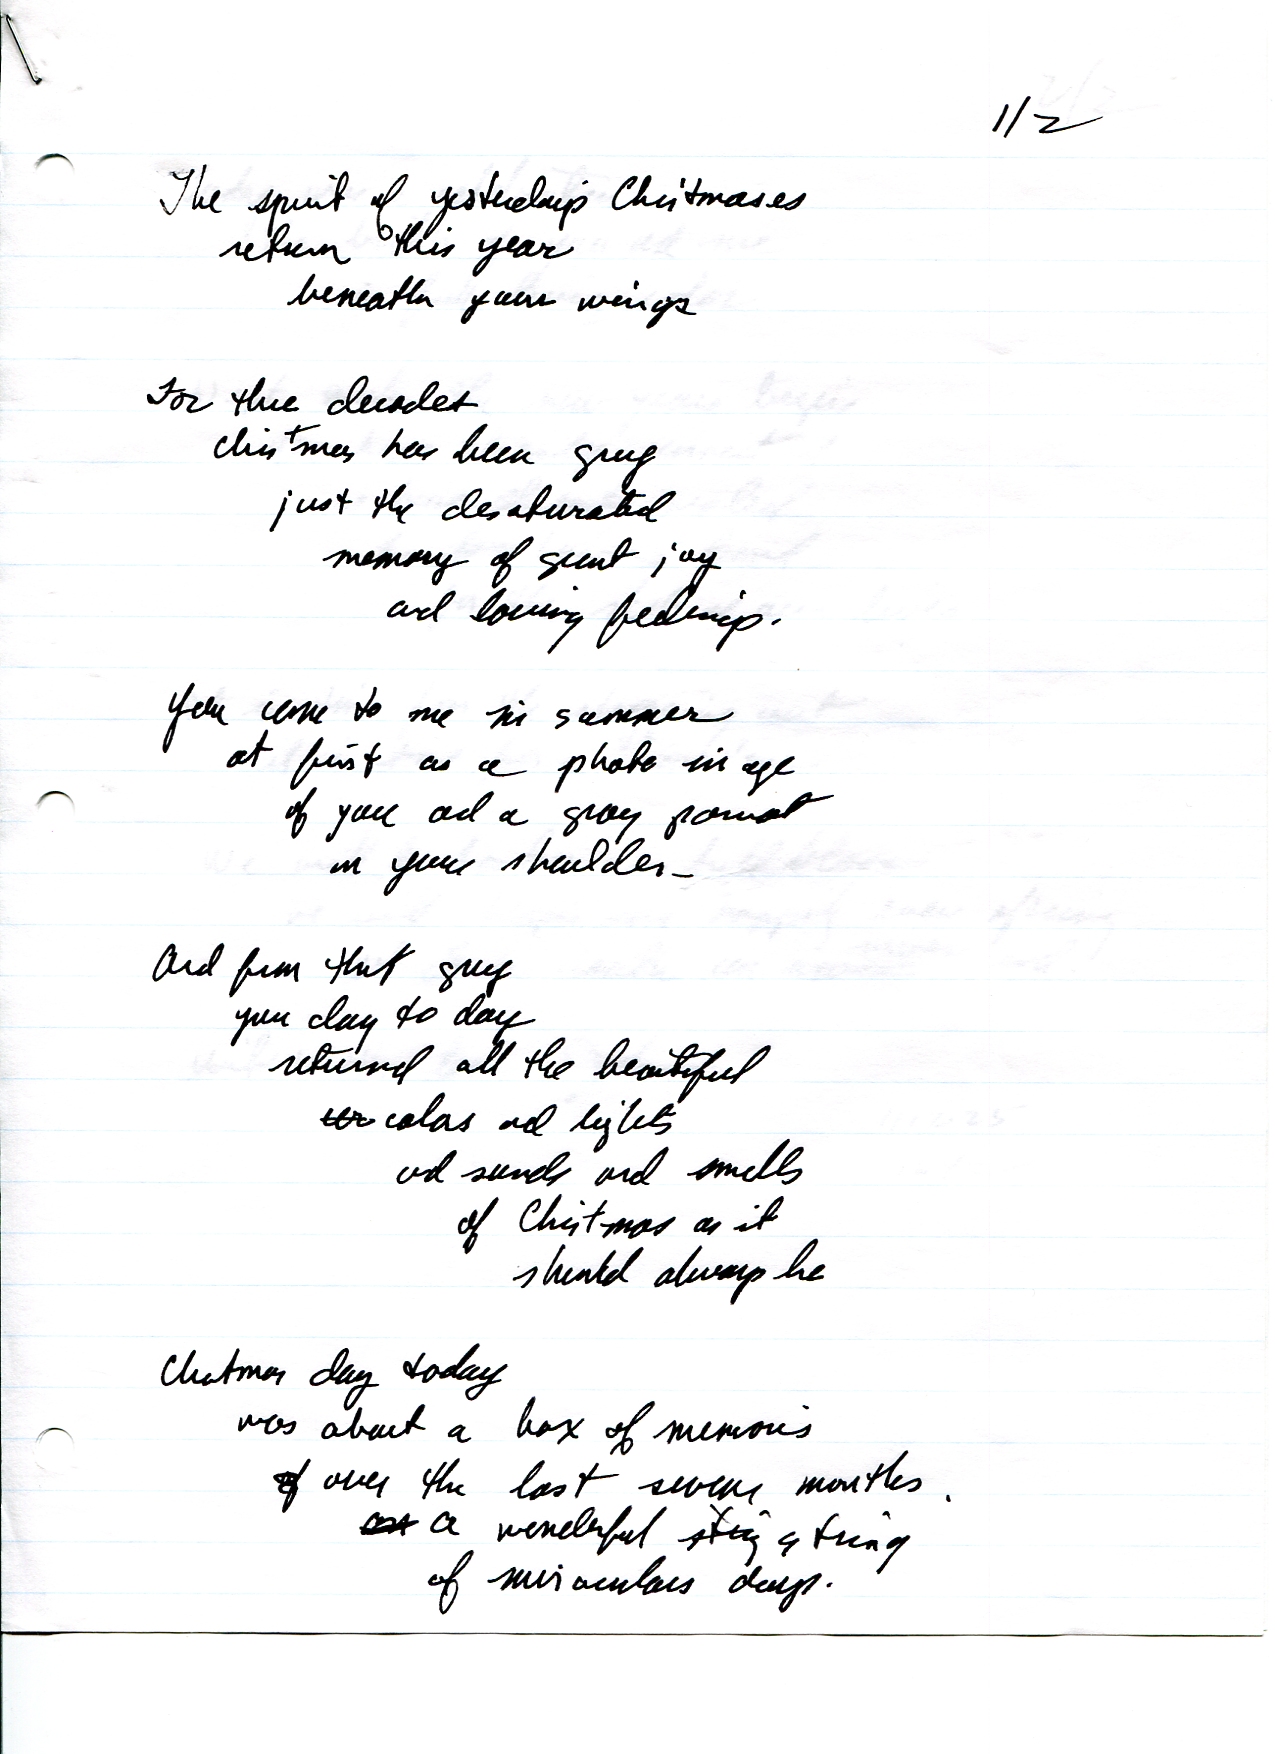 1/2
The spirit of yesterday's Christmases
return this year
beneath your wings
For three decades
christmas has been grey
just the desaturated
memory of great joy
and loving feelings.
You come to me in summer
at first as a photo image
of you and a gray parrot
on your shoulder_
And from that grey
you day to day
returned all the beautiful
colors and lights
and sounds and smells
of Christmas as it
should always be
Christmas day today
was about a box of memories
of over the last seven months.
a wonderful string string
of miraculous days.